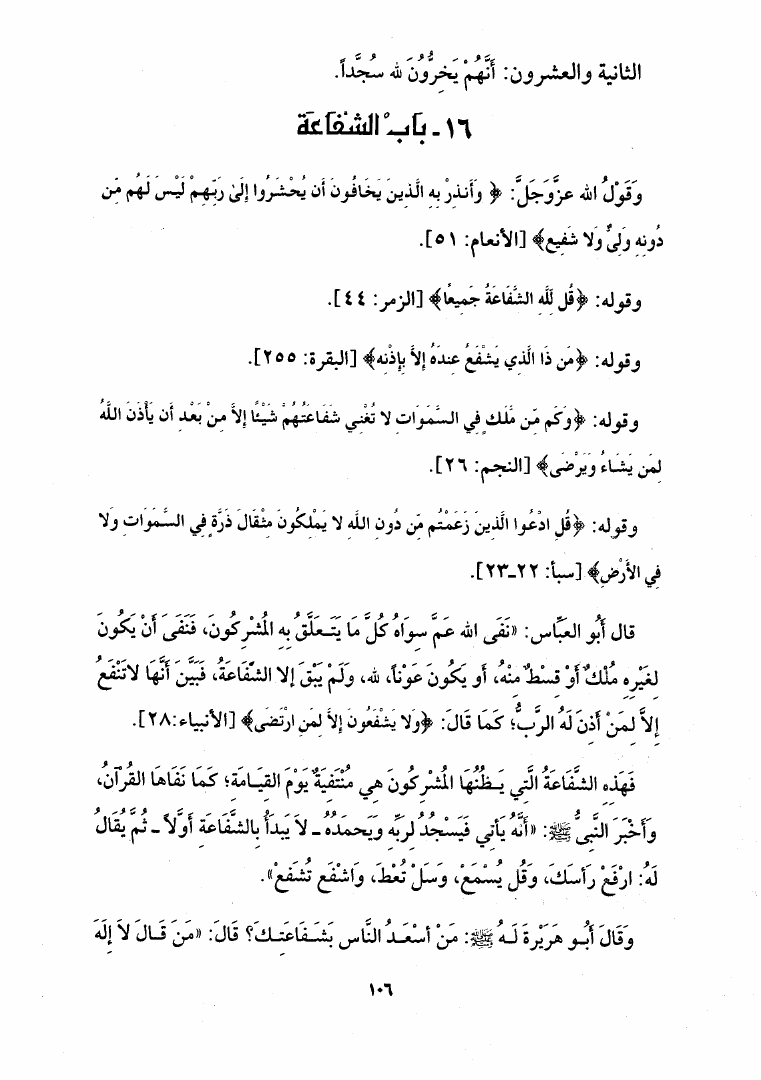 الثانية والعشرون: أَنَّهُمْ يَخِرُّونَ لله سُجَّداً.
١٦ ـ بَابُ الشَّفَاعَة
وَقَوْلُ الله عزَّوَجَلَّ: ﴿ وَأَنذِرْ بِهِ الَّذِينَ يَخَافُونَ أَن يُحْشَرُوا إِلَىٰ رَبِّهِمْ لَيْسَ لَهُم مِّن
دُونِهِ وَلِيٌّ وَلا شَفِيع﴾ [الأنعام: ٥١].
وقوله: ﴿قُل لِّلَّهِ الشَّفَاعَةُ جَمِيعًا﴾ [الزمر: ٤٤].
وقوله: ﴿مَن ذَا الَّذِي يَشْفَعُ عِندَهُ إِلاَّ بِإِذْنِهِ﴾ [البقرة: ٢٥٥].
وقوله: ﴿وَكَم مِّن مَّلَكٍ فِي السَّمَوَاتِ لا تُغْنِي شَفَاعَتُهُمْ شَيْئًا إِلاَّ مِنْ بَعْدِ أَن يَأْذَنَ اللَّهُ
لِمَن يَشَاءُ وَيَرْضَى﴾ [النجم: ٢٦].
وقوله: ﴿قُلِ ادْعُوا الَّذِينَ زَعَمْتُم مِّن دُونِ اللَّهِ لا يَمْلِكُونَ مِثْقَالَ ذَرَّةٍ فِي السَّمَوَاتِ وَلا
فِي الأَرْضِ﴾ [سبأ: ٢٢ـ٢٣].
قال أَبُو العبَّاس: «نَفَى الله عَمَّ سِوَاهُ كُلَّ مَا يَتَعلَّقُ بِهِ المُشْرِكُونَ، فَنَفَى أَنْ يَكُونَ
لِغَيْرِهِ مُلْكٌ أَوْ قِسْطٌ مِنْهُ، أَو يَكُونَ عَوْناً، لله، وَلَمْ يَبْقَ إِلا الشَّفَاعَةُ، فَبَيَّنَ أَنَّهَا لاتَنْفَعُ
إِلاَّ لِمَنْ أَذِنَ لَهُ الرَّبُّ؛ كَمَا قَالَ: ﴿وَلا يَشْفَعُونَ إِلاَّ لِمَنِ ارْتَضَى﴾ [الأنبياء:٢٨].
فَهَذِهِ الشَّفَاعَةُ الَّتِي يَظُنُّهَا المُشْرِكُونَ هِي مُنْتَفِيَةٌ يَوْمَ القِيَامَة؛ كَمَا نَفَاهَا القُرْآنُ،
وَأَخْبَرَ النَّبِيُّ ﷺ: «أَنَّهُ يَأتي فَيَسْجُدُ لِرَبِّهِ وَيَحمَدُهُ ـ لاَ يَبدَأُ بِالشَّفَاعَة أَوَّلاً ـ ثُمَّ يُقَالُ
لَهُ: ارْفَعْ رَأسَكَ، وَقُل يُسْمَعْ، وَسَلْ تُعْطَ، وَاشْفَع تُشَفعْ».
وَقَالَ أَبُو هَرَيْرةَ لَـهُ ﷺ: مَنْ أسْعَدُ النَّاس بِشَفَاعَتِكَ؟ قَالَ: «مَنَ قَالَ لاَ إِلَهَ
١٠٦